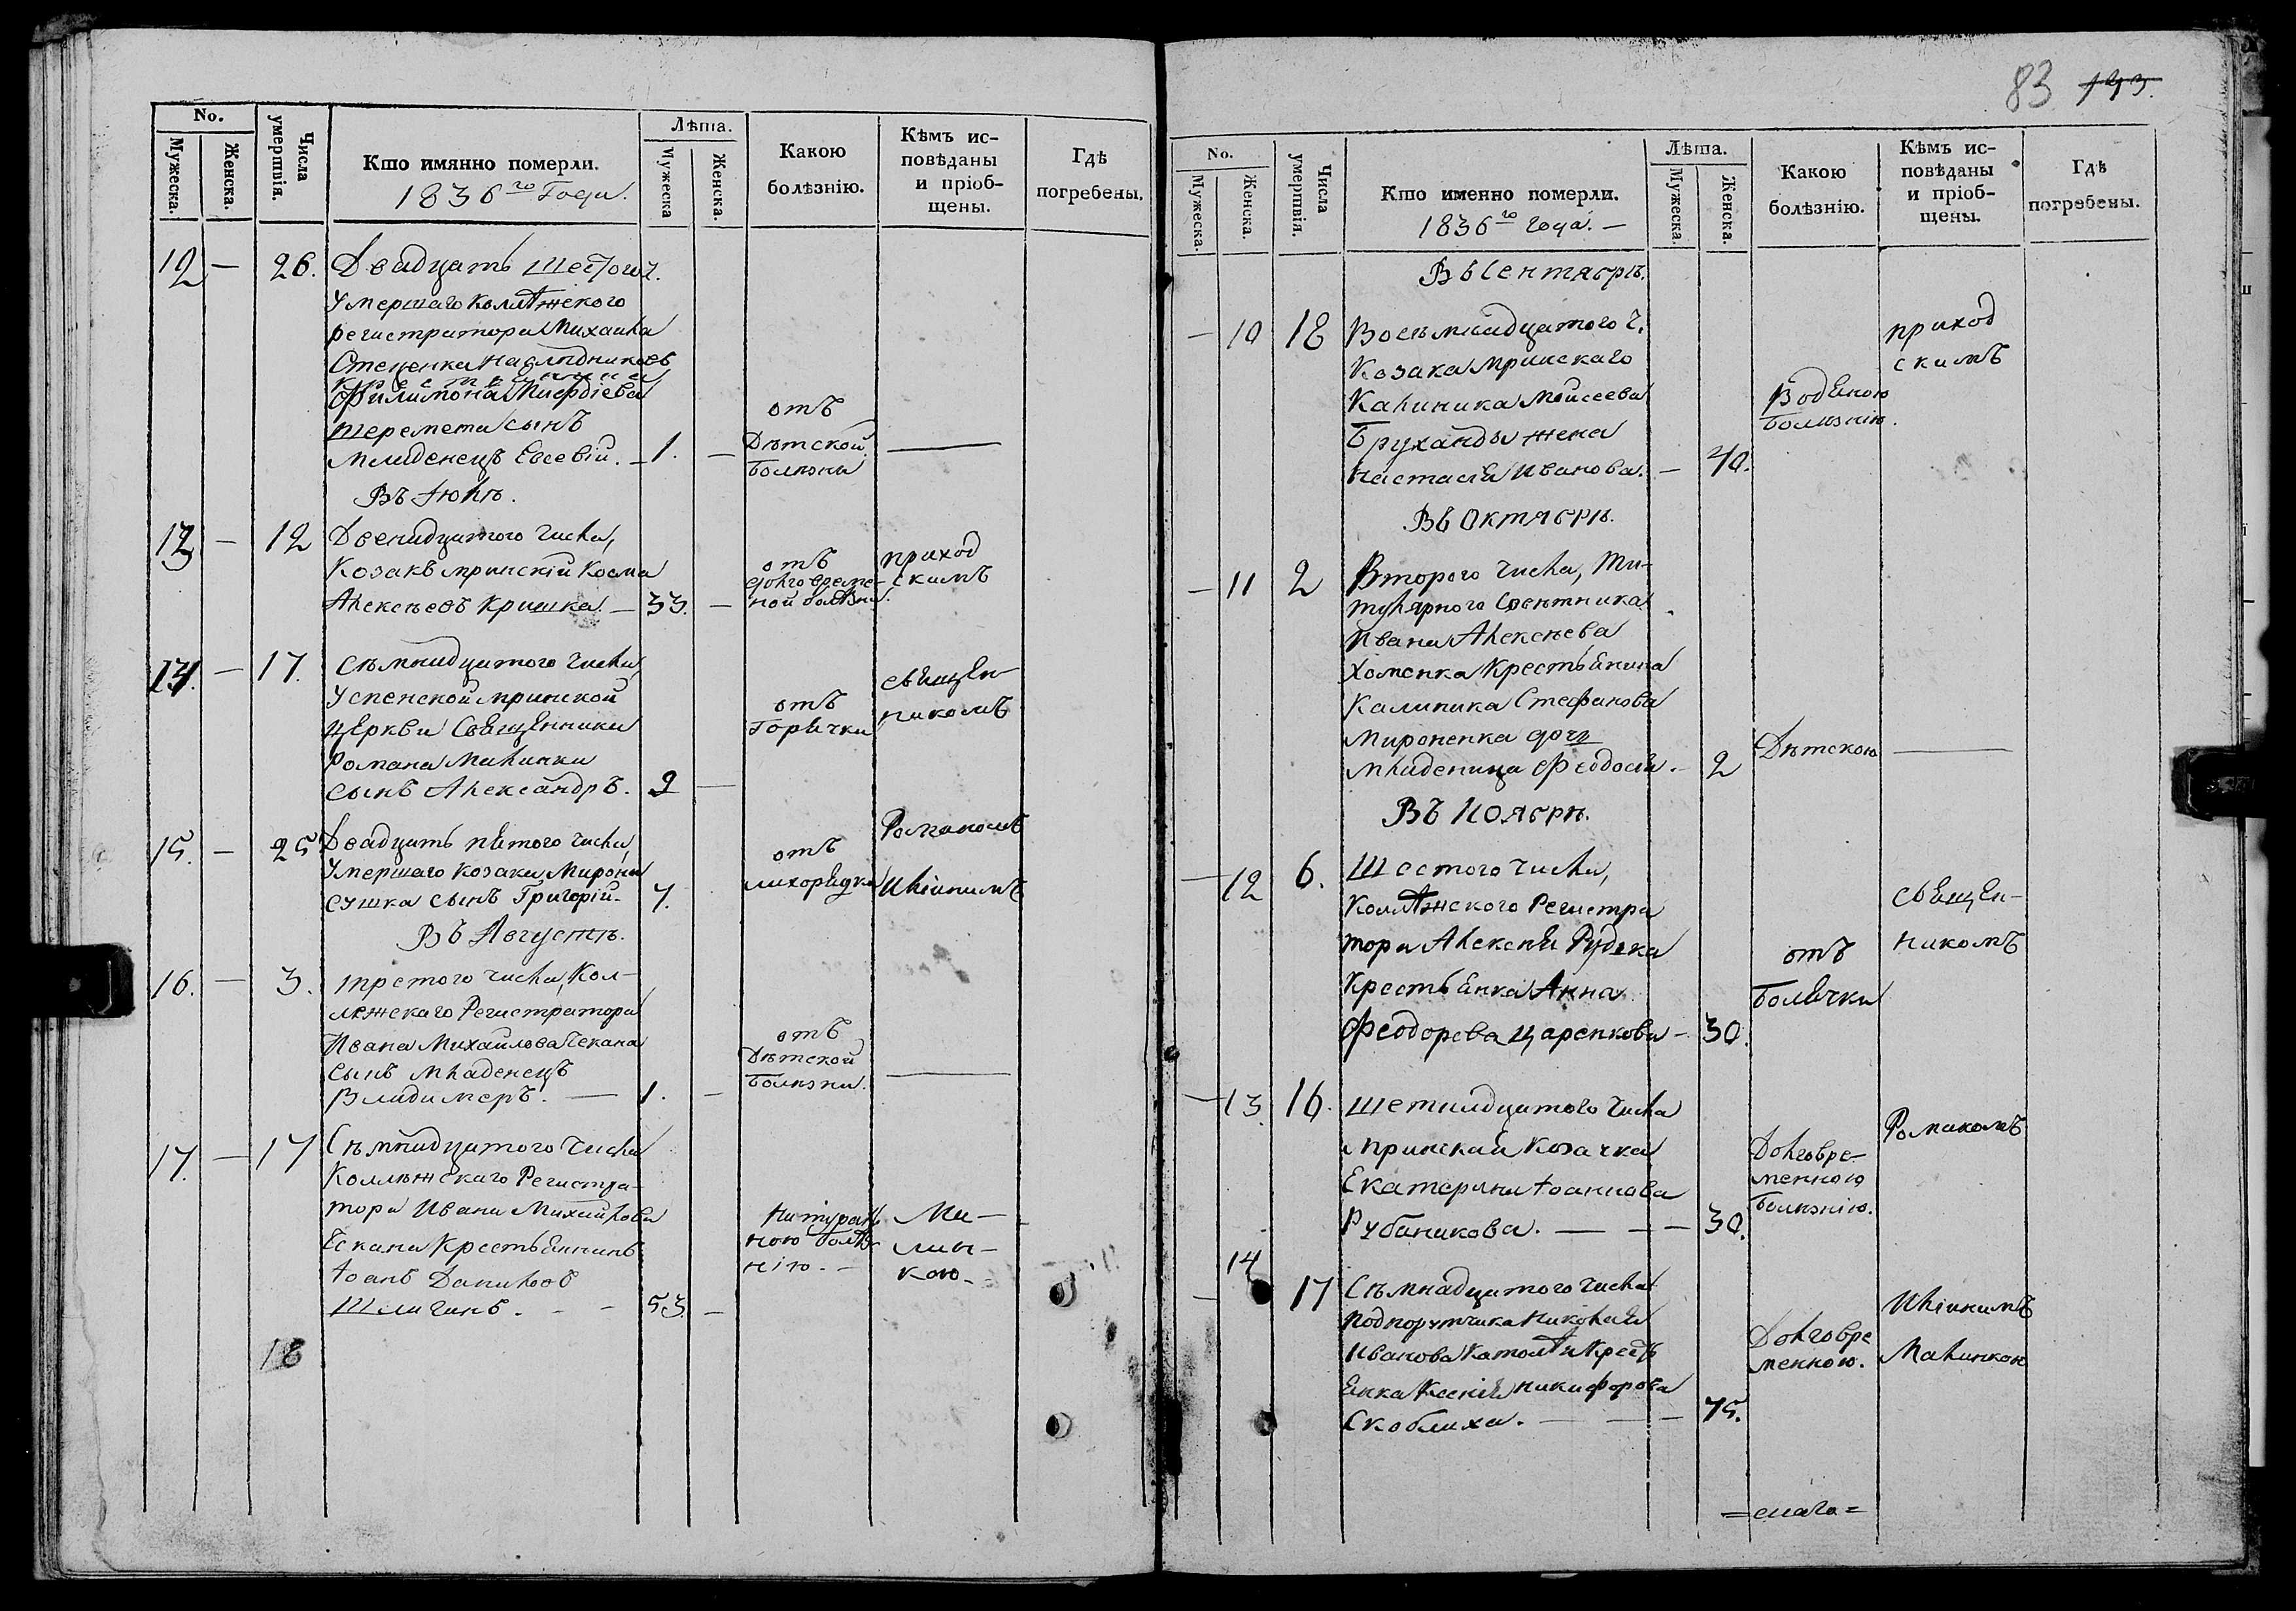 No.
Мужеска.
Женска.
Числа умертвія.
Кто имянно померли.
1836го Года.
Лѣта.
Мужеска
Женска.
Какою
болѣзнію.
Кѣмъ ис-
повѣданы
и пріоб-
щены.
Гдѣ
погребены.
12 — 26. Двадцать шестого ч.
Умершаго Коллѣжского
регистратора Михаила
Стеценка наслѣдниковъ
крестьянина
Филимона
Шеремета сынъ
младенецъ Евсевій. — 1. —
отъ
Дѣтской
болѣзни
Въ Іюлѣ.
13 — 12 Двенадцатого числа,
Козакъ мринскій Косма
Алексѣевъ Кришка — 33. —
отъ
долговреме-
ной болѣзни.
приход
скимъ
14. — 17. Сѣмнадцатого числа
Успенской мринской
церкви Священника
Романа Малинки
сынъ Александръ. 2 —
отъ
Горячки
священ-
никомъ
15. — 25 Двадцать пятого числа,
Умершаго козака Мирона
Сушка сынъ Григорій. 7.
отъ
лихорадки
Романомъ
Иліинимъ
Въ Августѣ.
16. — 3. третого числа, Кол-
лежскаго Регистратора
Ивана Михайлова Чекана
Сынъ младенецъ
Владимеръ. — 1. —
отъ
Дѣтской
болѣзни.
17. — 17 Сѣмнадцатого числа
Коллѣжскаго Регистра-
тора Ивана Михайлова
Чекана Крестьянинъ
Іоанъ Данилов
Шлигинъ. — 53. —
Натурал
ною болѣз
нію. —
Ма-
лин-
кою
18
83 193.
No.
Мужеска.
Женска.
Числа умертвія.
Кто именно померли.
1836го года. —
Лѣта.
Мужеска.
Женска.
Какою
болѣзнію.
Кѣмъ ис-
повѣданы
и пріоб-
щены.
Гдѣ
погребены.
Въ Сентябрѣ.
— 10 18 Восьмнадцатого ч.
Козака мринскаго
Калиника Мойсеева
Бруханды жена
Настасія Иванова. — 40.
Водяною
болѣзнію.
приход
скимъ
Въ Октябрѣ.
— 11 2 Второго числа, Ти-
тулярного Совѣтника
Ивана Алексѣева
Хоменка Крестьянина
Калиника Стефанова
Мироненка дочь
младеница Феодосія. — 2
Дѣтскою
Въ Ноябрѣ.
— 12 6. Шестого числа,
Коллѣжского Регистра
тора Алексѣя Рудька
Крестьянка Анна
Феодорева Царенкова — 30.
отъ
болячки
священ-
никомъ
— 13. 16. Шетнадцатого числа
мринская Козачка
Екатерина Іоаннова
Рубаникова. — — — 30.
Долговре-
менною
болѣзнію.
Романомъ
— 14 17 Сѣмнадцатого числа
Подпорутчика Николая
Иванова Крест
янка Ксенія Никифорова
Скоблиха. — — — 75.
Долговре
менною.
Иліинимъ
Малинкою